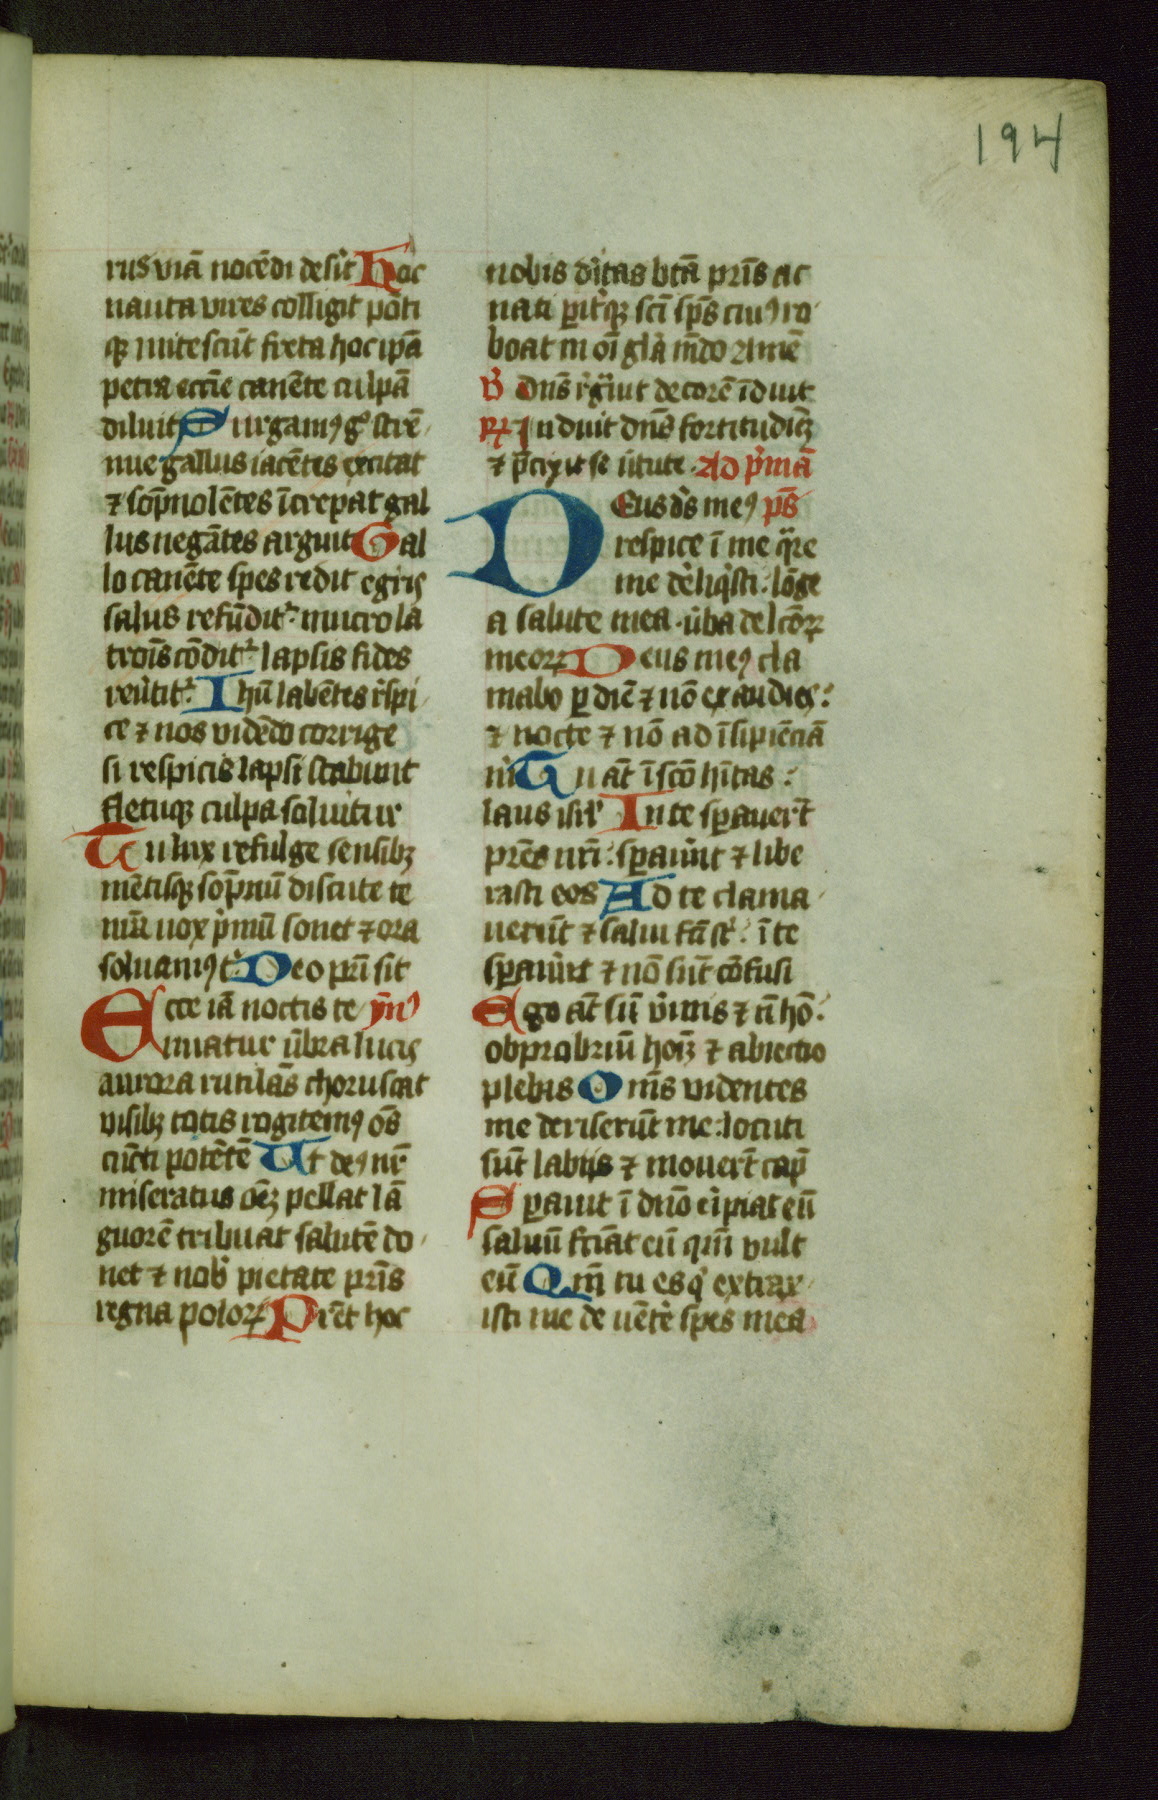 194
rus viā nocēdi desīt Hoc
nauta vires colligit pōti
qȝ mitescūt freta hoc ipā
petra ecc̄ie canēte culpā
diluit Surgamꝰ gͦ strē
nue gallus iacētes excitat
⁊ sōpnolētes īcrepat gal
lus negātes arguit Gal
lo canēte spes redit egris
salus refūditᷣ mucro la
tronīs cōditᷣ lapsis fides
reūtitᷣ Ihū labētes r̄spi
ce ⁊ nos vidēdo corrige
si respicis lapsi stabunt
fletuqȝ culpa soluitur
Tu lux refulge sensibȝ
mētisqȝ sōpnū discute te
nr̄a uox p̄mū sonet ⁊ ora
soluamꝰ tͥ Deo pr̄i sit
Ecce iā noctis te ym̄
nuatur ūbra lucis
aurora rutilās choruscat
nisibȝ totis rogitemꝰ oēs
cūcti potētē Ut deꝰ nr̄
miseratus oēȝ pellat lā
guorē tribuat salutē do
net ⁊ nobͦ pietate pr̄is
regna poloꝝ Prēt hoc
nobis dītas btā pr̄is ac
nati pit̄qȝ sc̄i sp̄s cuiꝰ ro
boat in oī glā mūdo Amē
V̄ Dn̄s rᷤgͣuit decorē īduit
Rꝝ Induit dn̄s fortitudīeȝ
⁊ p̄cīxit se ūtute Ad p̄mā
Deus ds̄ meꝰ ps̄
respice ī me qͣre
me dēliqͥsti: lōge
a salute mea ūba delcōꝝ
meoꝝ Deus meꝰ cla
mabo p diē ⁊ nō exaudies:
⁊ nocte ⁊ nō ad īsipiēciā
mͥ Tu at̄ ī scō hītas:
laus isrͥl In te sperauert̄
pr̄es nr̄i: sperauūt ⁊ libe
rasti eos Ad te clama
uerūt ⁊ salui fc̄i st̄: ī te
sperauūt ⁊ nō sūt cōfusi
Ego at̄ sū v̄mis ⁊ n̄ hō:
obprobriū hoīȝ ⁊ abiectio
plebis Oms̄ videntes
me deriserūt me: locuti
sūt labiis ⁊ mouert̄ cap̄
Sperauit ī dn̄o eripiat eū
saluū faciāt eū qm̄ vult
eū Qm̄ tu es qͥ extrax
isti me de uētre spes mea